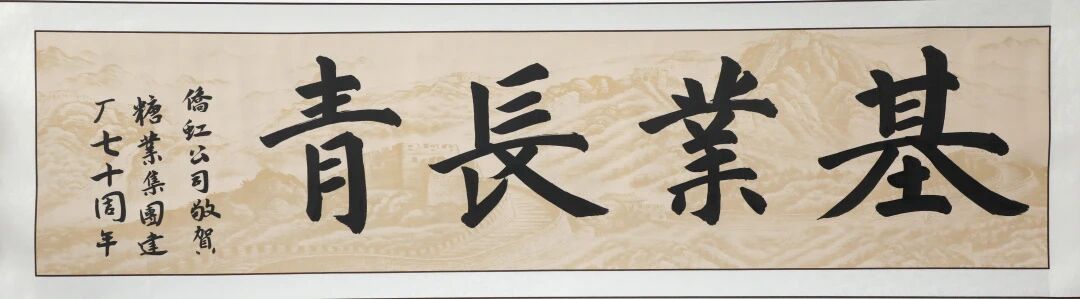 基業長青
僑虹公司敬賀
糖業集團建
厂七十周年